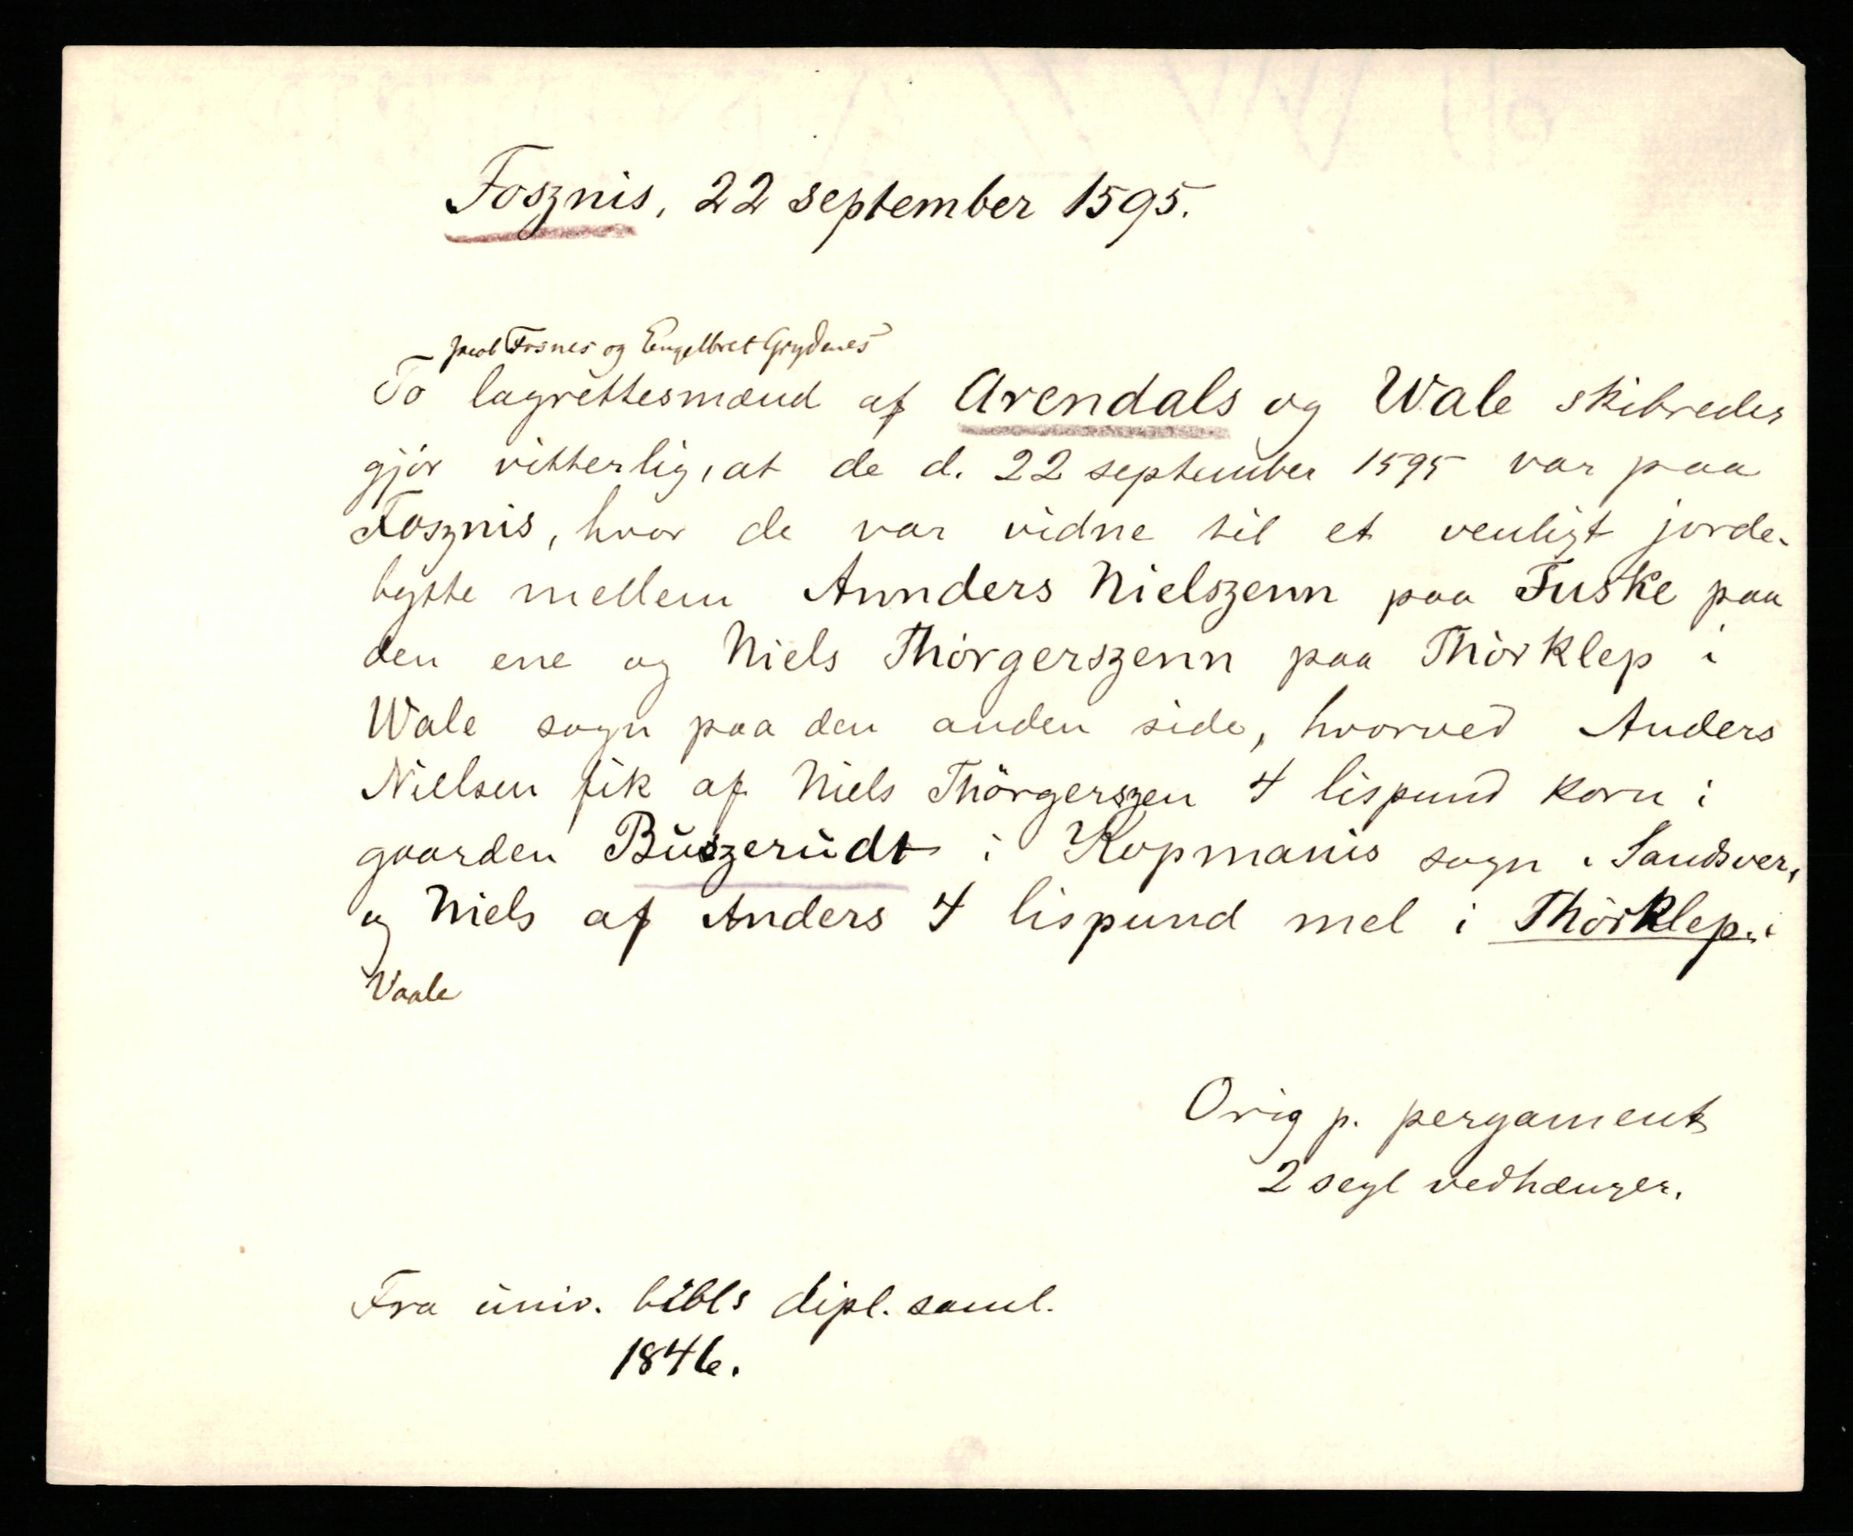 Fosznis, 22 september 1595.
Jacob Fosnes og Engelbret Grydenes
To lagrettesmænd af Arendals og Wale skibreder
gjör vitterlig, at de d. 22 september 1595 var paa
Fosznis, hvor de var vidne til et venligt jorde-
bytte mellem Annders Nielszenn paa Fuske paa
den ene og Niels Thörgerszenn paa Thörklep i
Wale sogn paa den anden side, hvorved Anders
Nielsen fik af Niels Thörgerszen 4 lispund korn i
gaarden Büszerüdt i Kopmanis sogn i Sandsver,
og Niels af Anders 4 lispund mel i Thörklep i
Vaale
Orig p. pergament
2 segl vedhænger.
Fra univ. bibls dipl. saml.
1846.